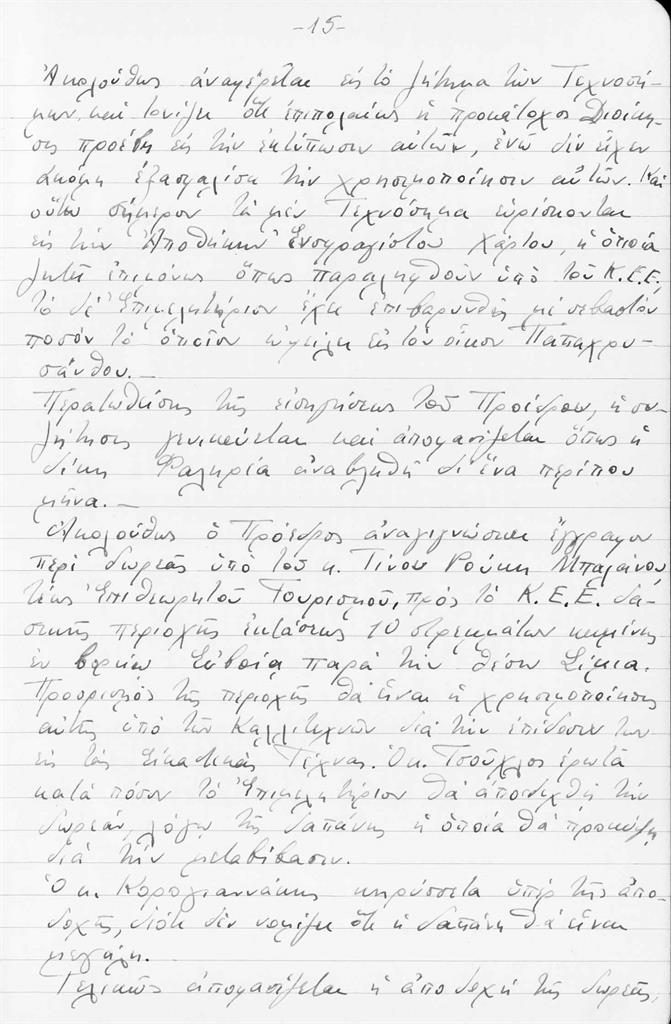 -15-
Ἀκολούθως ἀναφέρεται εἰς τὸ ζήτημα τῶν Τεχνοσή-
μων, καὶ τονίζει ὅτι ἐπιπολαίως ἡ προκάτοχος Διοίκη-
σις προέβη εἰς τὴν ἐκτύπωσιν αὐτῶν, ἐνῶ δὲν εἶχεν
ἀκόμη ἐξασφαλίσει τὴν χρησιμοποίησιν αὐτῶν. Καὶ
οὕτω σήμερον τὰ μὲν Τεχνόσημα εὑρίσκονται
εἰς τὴν Ἀποθήκην Ἐνσφραγίστου Χάρτου, ἡ ὁποία
ζητεῖ ἐπιμόνως ὅπως παραληφθοῦν ὑπὸ τοῦ Κ.Ε.Ε.,
τὸ δὲ Ἐπιμελητήριον ἔχει ἐπιβαρυνθῆ μὲ σεβαστὸν
ποσὸν τὸ ὁποῖον ὠφείλει εἰς τὸν οἶκον Παπαχρυ-
σάνθου.—
Περατωθείσης τῆς εἰσηγήσεως τοῦ Προέδρου, ἡ συ-
ζήτησις γενικεύεται καὶ ἀποφασίζεται ὅπως ἡ
δίκη Φαληρέα ἀναβληθῆ δι' ἕνα περίπου
μῆνα.—
Ἀκολούθως ὁ Πρόεδρος ἀναγιγνώσκει ἔγγραφον
περὶ δωρεᾶς ὑπὸ τοῦ κ. Τίνου Ρούκη Μπαλάνου,
τέως Ἐπιθεωρητοῦ Τουρισμοῦ, πρὸς τὸ Κ.Ε.Ε. δα-
σικῆς περιοχῆς ἐκτάσεως 10 στρεμμάτων κειμένης
ἐν βορείῳ Εὐβοίᾳ παρὰ τὴν θέσιν
Προορισμὸς τῆς περιοχῆς θὰ εἶναι ἡ χρησιμοποίησις
αὐτῆς ὑπὸ τῶν Καλλιτεχνῶν διὰ τὴν ἐπίδοσίν των
εἰς τὰς Εἰκαστικὰς Τέχνας. Ὁ κ. Τσοῦχλος ἐρωτᾶ
κατὰ πόσον τὸ Ἐπιμελητήριον θὰ ἀποδεχθῆ τὴν
δωρεάν, λόγῳ τῆς δαπάνης ἡ ὁποία θὰ προκύψῃ
διὰ τὴν μεταβίβασιν.
Ὁ κ. Κορογιαννάκης κηρύσσεται ὑπὲρ τῆς ἀπο-
δοχῆς, διότι δὲν νομίζει ὅτι ἡ δαπάνη θὰ εἶναι
μεγάλη.
Τελικῶς ἀποφασίζεται ἡ ἀποδοχὴ τῆς δωρεᾶς,